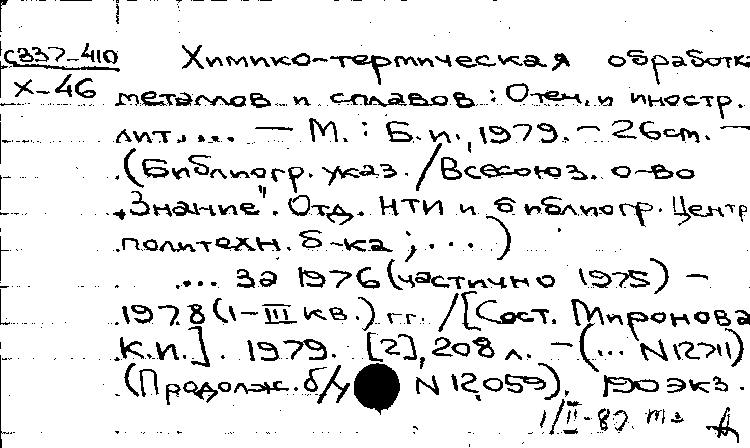 с337-410 Химико-термическая обработка
Х-46 металлов и сплавов : Отеч. и иностр.
лит.... — М. : Б. и., 1979. - 26 см. —
(Библиогр. указ. / Всесоюз. о-во
„Знание". Отд. НТИ и библиогр. Центр.
политехн. б-ка ; ...)
... За 1976 (частично 1975) -
1978 (I-III кв.) гг. / [Сост. Миронова
К.И.]. 1979. [2], 208 л. - (... N 12711)
(Продолж. б/у N 12.059). 190 экз.
1/II-80